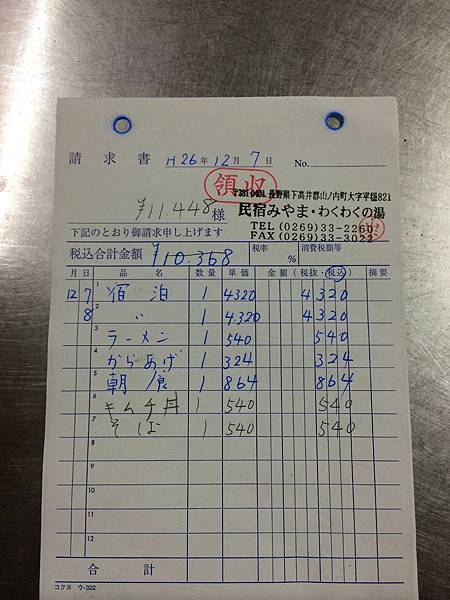 請求書 H26年12月7日 No.
領収
〒381-0401 長野県下高井郡山ノ内町大字平穏821
¥11.448 様 民宿みやま・わくわくの湯
下記のとおり御請求申し上げます TEL (0269)33-2260
FAX (0269)33-3022
税込合計金額 ¥10.368 税率 % 消費税額等
月 日 品名 数量 単価 金額(税抜・税込) 摘要
12 7 1 宿泊 1 4320 4320
8 2 〃 1 4320 4320
3 ラーメン 1 540 540
4 からあげ 1 324 324
5 朝食 1 864 864
6 キムチ丼 1 540 540
7 そば 1 540 540
8
9
10
11
12
合計
コクヨ ウ-322